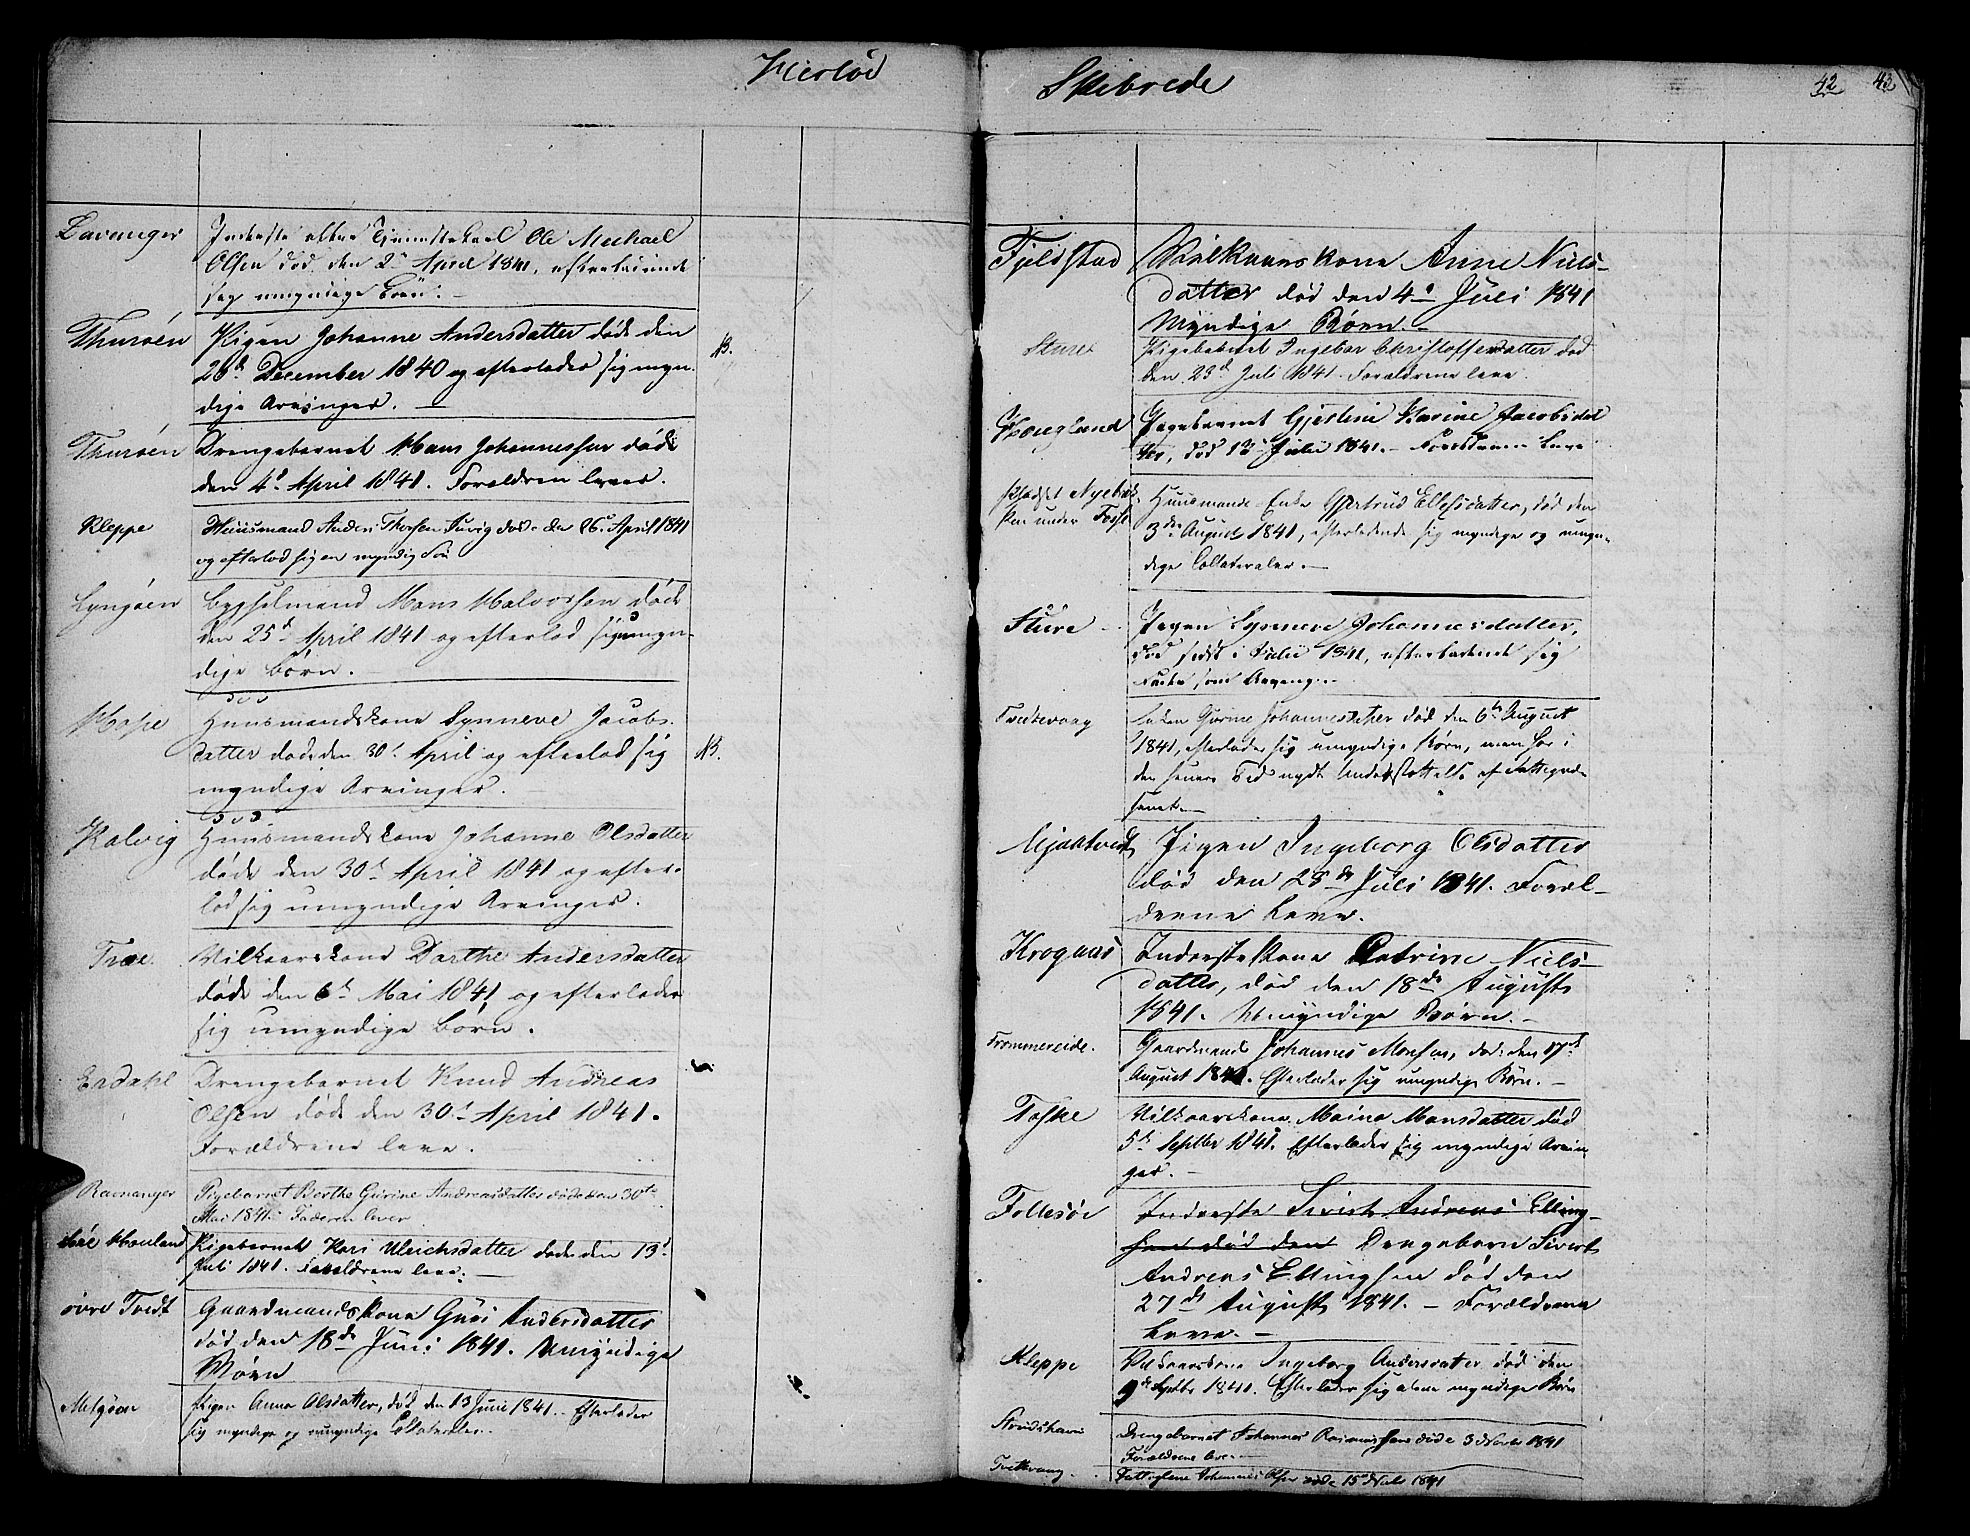 Herløe
Lavanger
Inderste Ole Michael
Olsen død den 2d April 1841, efterladende
sig umyndige Børn. -
Thuröen
Pigen Johanne Andersdatter døde den
28d December 1840 og efterlader sig myn-
dige Arvinger. -
N.
Thuröen
Drengebarnet Hans Johannessen døde
den 4d April 1841. Forældren lever.
Kleppe
Huusmand Anders Thorsen døde den 26d April 1841
og efterlod sig en myndig Søn
Lyngöen
Bygselmand Hans Halvorsen døde
den 25d April 1841 og efterlod sig umyn-
dige Børn. -
Hope
Huusmandskone Synneve Jacobs-
datter døde den 30d April og efterlod sig
myndige Arvinger. -
N.
Kalvig
Huusmandskone Johanne Olsdatter
døde den 30d April 1841 og efter-
lod sig umyndige Arvinger.
Træe
Vilkaarskone Dorthe Andersdatter
døde den 6d Mai 1841 og efterlader
sig umyndige Børn.
Erdahl
Drengebarnet Knud Andreas
Olsen døde den 30d April 1841.
Forældrene leve.
Ramanger
Pigebarnet Berthe Gurine Andreasdatter døde den 30te
Mai 1841. Faderen lever
Houland
Pigebarnet Kari Ulrichsdatter døde den 13d
Juli 1841. Forældrene leve. -
övre Tvedt
Gaardmandskone Guri Andersdatter
død den 18de Juni 1841. Umyndige
Børn
Melgöen
Pigen Anna Olsdatter, død den 13 Juni 1841. - Efterlader
sig myndige og umyndige Collateraler. -
Skibrede
42 43
Fjeldstad
Vilkaarskone Anne Niels-
datter død den 4d Juli 1841
Myndige Børn. -
Sture
Pigebarnet Ingebor Christoffersdatter død
den 23d Juli 1841. Forældrene leve.
Hougland
Pigebarnet Gjertine Karine Jacobsdat
ter, død 12 Julii 1841. - Forældrene leve
Pladset
under Fosse
Huusmands Enke Gjertrud Ellefsdatter, død den
3die August 1841, efterladende sig myndige og umyn-
dige Collateraler. -
Sture -
Pigen Synneve Johannesdatter,
død sidst i Julii 1841, efterladende sig
Fader som Arving. -
Tvedtevaag
Enken Gurine Johannesdatter død den 6te August
1841, efterlader sig umyndige Børn, men har i
den senere Tid nydt Understøttelse af Fattigvæ-
senet. -
Mjaatvedt
Pigen Ingeborg Olsdatter
død den 28de Juli 1841. Foræl-
drene leve.
Krognæs
Inderstekone Catrine Niels-
datter, død den 18de August
1841. Umyndige Børn. -
Trommereide.
Gaardmand Johannes Monsen, døde den 17d
August 1841. Efterlader sig umyndige Børn. -
Toske
Vilkaarskone Marina Monsdatter død
5te Septbr 1841. Efterlader sig myndige Arvin
ger. -
Follesöe
Inderste Sivert Andreas Elling-
sen død den Drengebarn Sivert
Andreas Ellingsen død den
27de August 1841. - Forældrene
leve. -
Kleppe
Vilkaarskone Ingeborg Andersdatter død den
9de Septbr 1841. Efterlader sig alene myndige Børn
Strudshavn
Drengebarnet Johannes Rasmussen døde 3 Novbr 1841
Forældrene leve. -
Tvettevaag.
Johannes Olsen døde 15 Novbr 1841